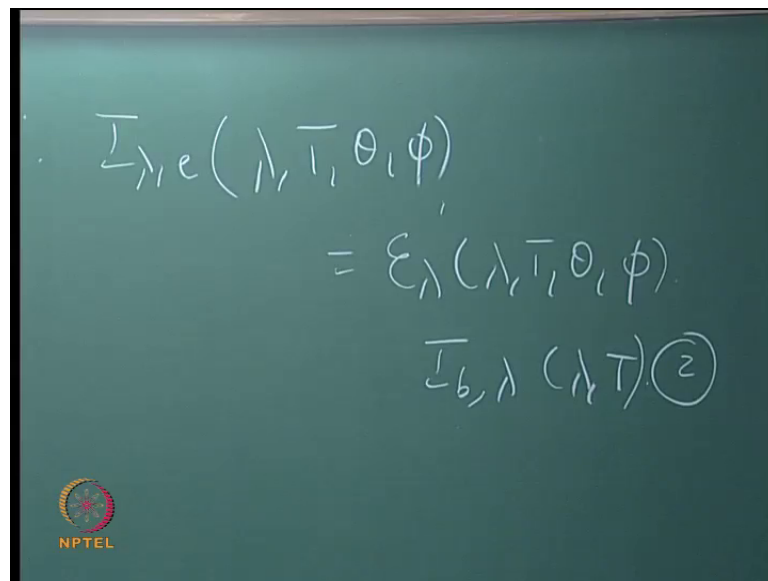 ∴ I_λ,e (λ, T, θ, φ)
= ε'_λ (λ, T, θ, φ).
I_b,λ (λ, T). ②
NPTEL